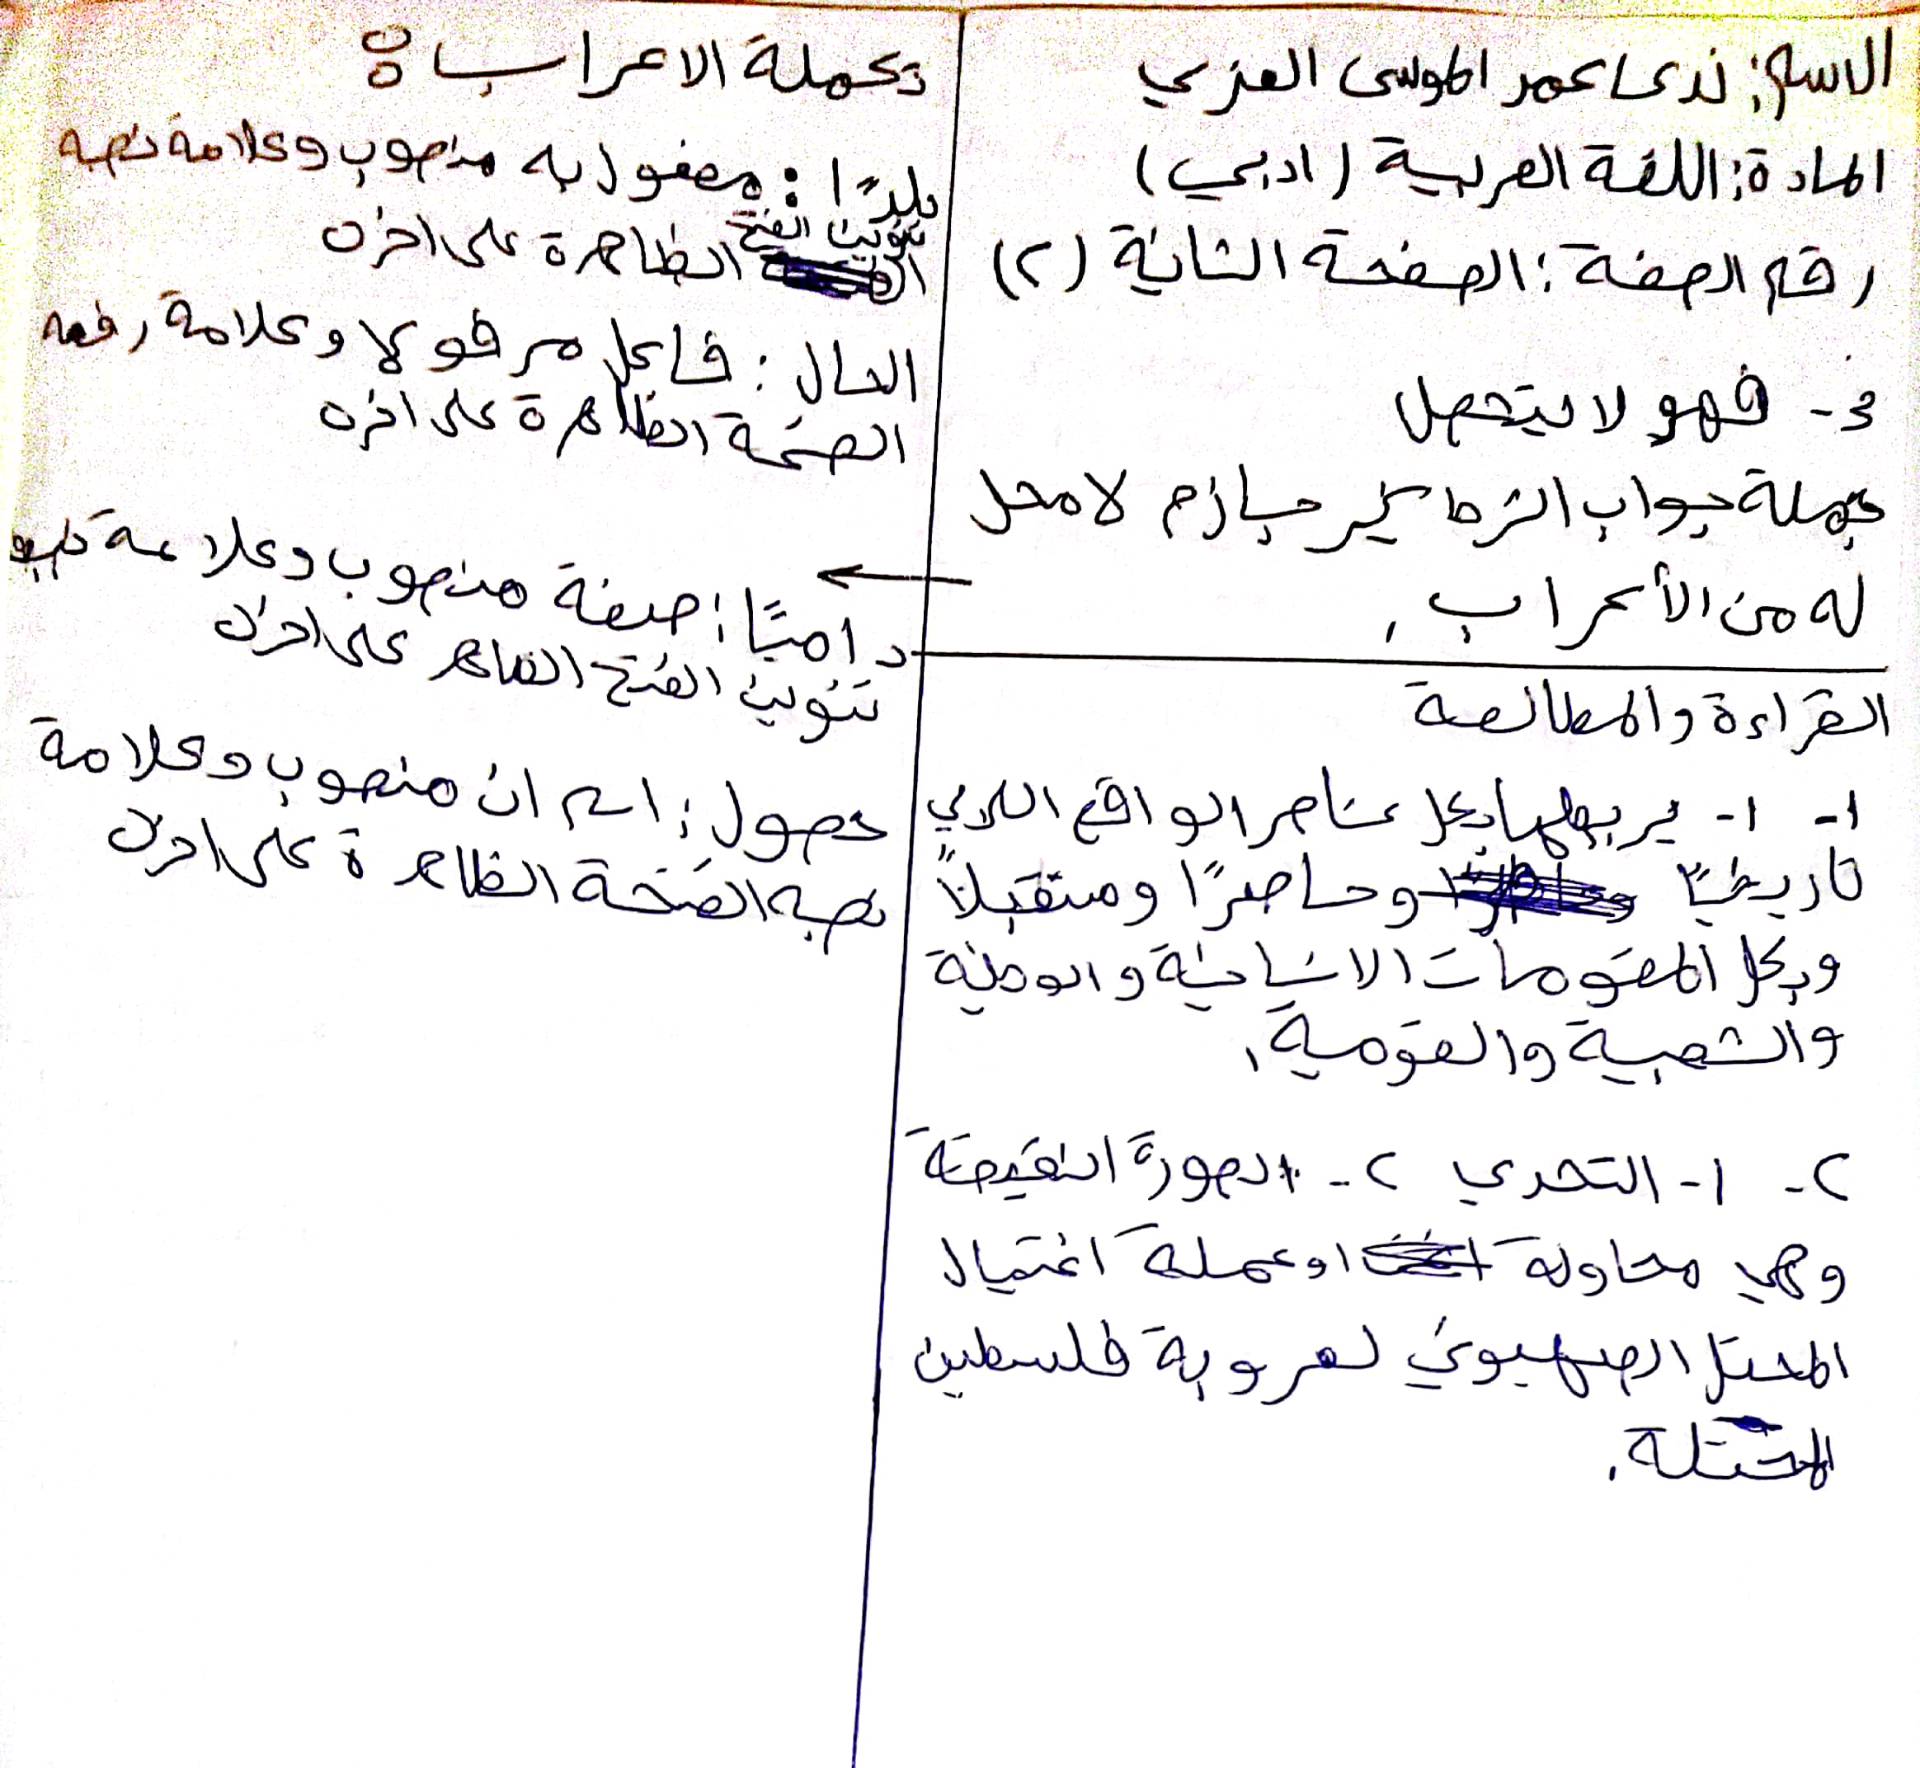 الاسم: ندى عمر الموسى العزي
المادة: اللغة العربية (ادبي)
رقم الصفة: الصفحة الثانية (٢)
٤- فهو لا يتحمل
جملة جواب الشرط غير جازم لا محل
له من الأعراب.
القراءة والمطالعة
١- ١- يربطها بكل عناصر الواقع العربي
تاريخيًا وحاضرًا ومستقبلاً
وبكل المقومات الانسانية والوطنية
والشعبية والقومية.
٢- ١- التحدي ٢- الصورة النقيضة
وهي محاولة او عملة اغتيال
المحتل الصهيوني لعروبة فلسطين
المحتلة.
تكملة الاعراب:
بلدًا: مفعول به منصوب وعلامة نصبه
تنوين الفتح الظاهرة على اخره
الحال: فاعل مرفوع وعلامة رفعه
الضمة الظاهرة على اخره
داميًا: صفة منصوب وعلامة نصبه
تنوين الفتح الظاهر على اخره
حصول: اسم ان منصوب وعلامة
نصبه الفتحة الظاهرة على اخره